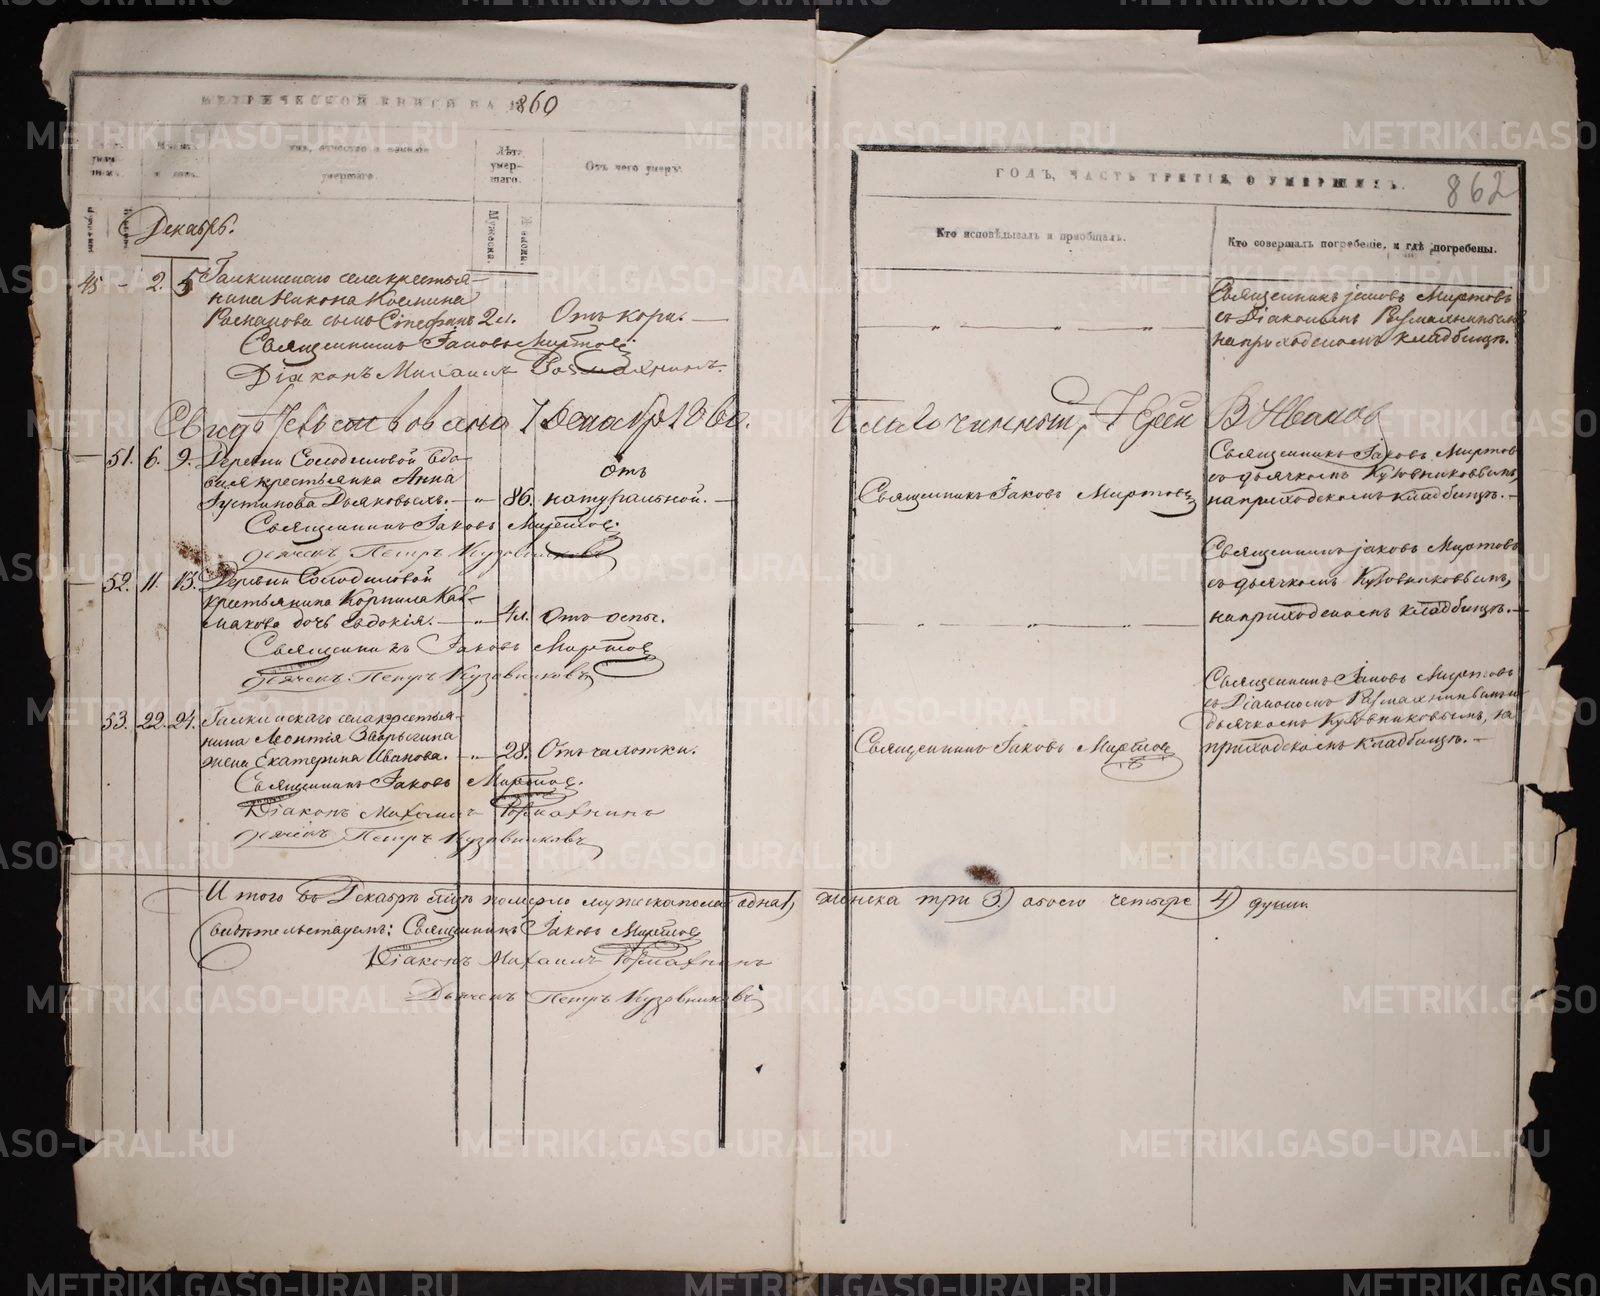 МЕТРИЧЕСКОЙ КНИГИ НА 1860
имя, отчество и фамилія умершаго.
Лѣта умер-
шаго.
Отъ чего умеръ.
Мужеска.
Женска.
Декабрь.
45 — 2. 5 Галкинскаго села крестья-
нина Никона Космина
сынъ Стефанъ 2 л. Отъ кори. —
Священникъ Іаковъ Миртовъ
Діаконъ Михаилъ
Свидѣтельствовано 7 Декабря 1860.
51. 6. 9. Деревни Солодиловой вдо-
вая крестьянка Анна
Іустинова Дьяковыхъ. — " 86. Отъ натуральной. —
Священникъ Іаковъ Миртовъ.
Дьячекъ Петръ Кузовниковъ
52. 11. 13. Деревни Солодиловой
крестьянина Корнила Кал-
макова дочь Евдокія. — " 4 л. Отъ оспы.
Священникъ Іаковъ Миртовъ
Дьячекъ Петръ Кузовниковъ
53. 22. 24. Галкинскаго села крестья-
нина Леонтія Звѣрыгина
жена Екатерина Иванова. — " — 28. Отъ чахотки.
Священникъ Іаковъ Миртовъ.
Діаконъ Михаилъ
Дьячекъ Петръ Кузовниковъ
Итого въ Декабрѣ м҃цѣ померло мужеска пола одна 1)
Свидѣтельствуемъ: Священникъ Іаковъ Миртовъ
Діаконъ Михаилъ
Дьячекъ Петръ Кузовниковъ
ГОДЪ, ЧАСТЬ ТРЕТІЯ, О УМЕРШИХЪ.
862
Кто исповѣдывалъ и пріобщалъ.
Кто совершалъ погребеніе, и гдѣ погребены.
Священникъ Іаковъ Миртовъ
съ Діакономъ
на приходскомъ кладбищѣ.
Благочинный, Іерей В Ивановъ
Священникъ Іаковъ Миртовъ
Священникъ Іаковъ Миртовъ
съ дьячкомъ Кузовниковымъ,
на приходскомъ кладбищѣ. —
Священникъ Іаковъ Миртовъ
съ дьячкомъ Кузовниковымъ,
на приходскомъ кладбищѣ. —
Священникъ Іаковъ Миртовъ
Священникъ Іаковъ Миртовъ
съ Діакономъ
дьячкомъ Кузовниковымъ, на
приходскомъ кладбищѣ. —
женска три 3.) обоего четыре 4) души.
METRIKI.GASO-URAL.RU